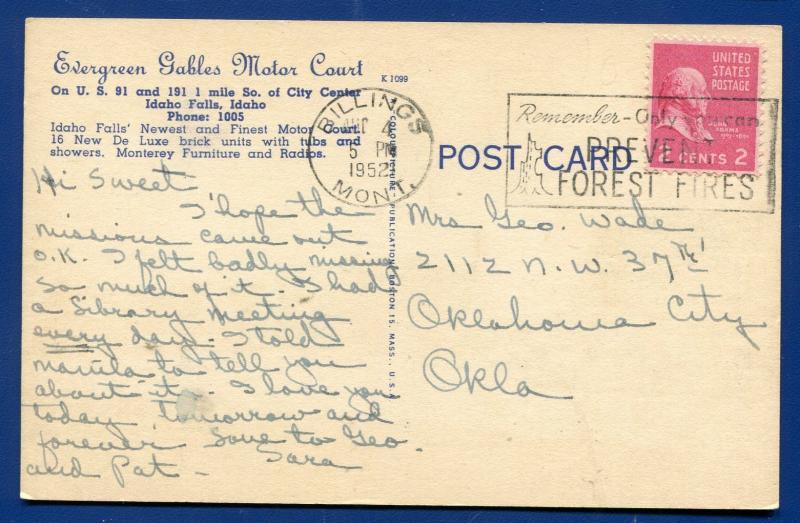 Evergreen Gables Motor Court
K 1099
On U. S. 91 and 191 1 mile So. of City Center
Idaho Falls, Idaho
Phone: 1005
Idaho Falls' Newest and Finest Motor Court.
16 New De Luxe brick units with tubs and
showers. Monterey Furniture and Radios.
BILLINGS
4
5 PM
1952
MONT.
UNITED
STATES
POSTAGE
JOHN
ADAMS
CENTS 2
Remember - Only you can
PREVENT
FOREST FIRES
POST CARD
COLOURPICTURE PUBLICATION BOSTON 15, MASS., U.S.A.
Hi Sweet
I hope the
missions came out
O.K. I felt badly missing
so much of it. I had
a library meeting
every day. I told
to tell you
about it. I love you
today, tomorrow and
forever. Love to Geo.
and Pat -
Sara
Mrs Geo. Wade
2112 N.W. 37th
Oklahoma City
Okla